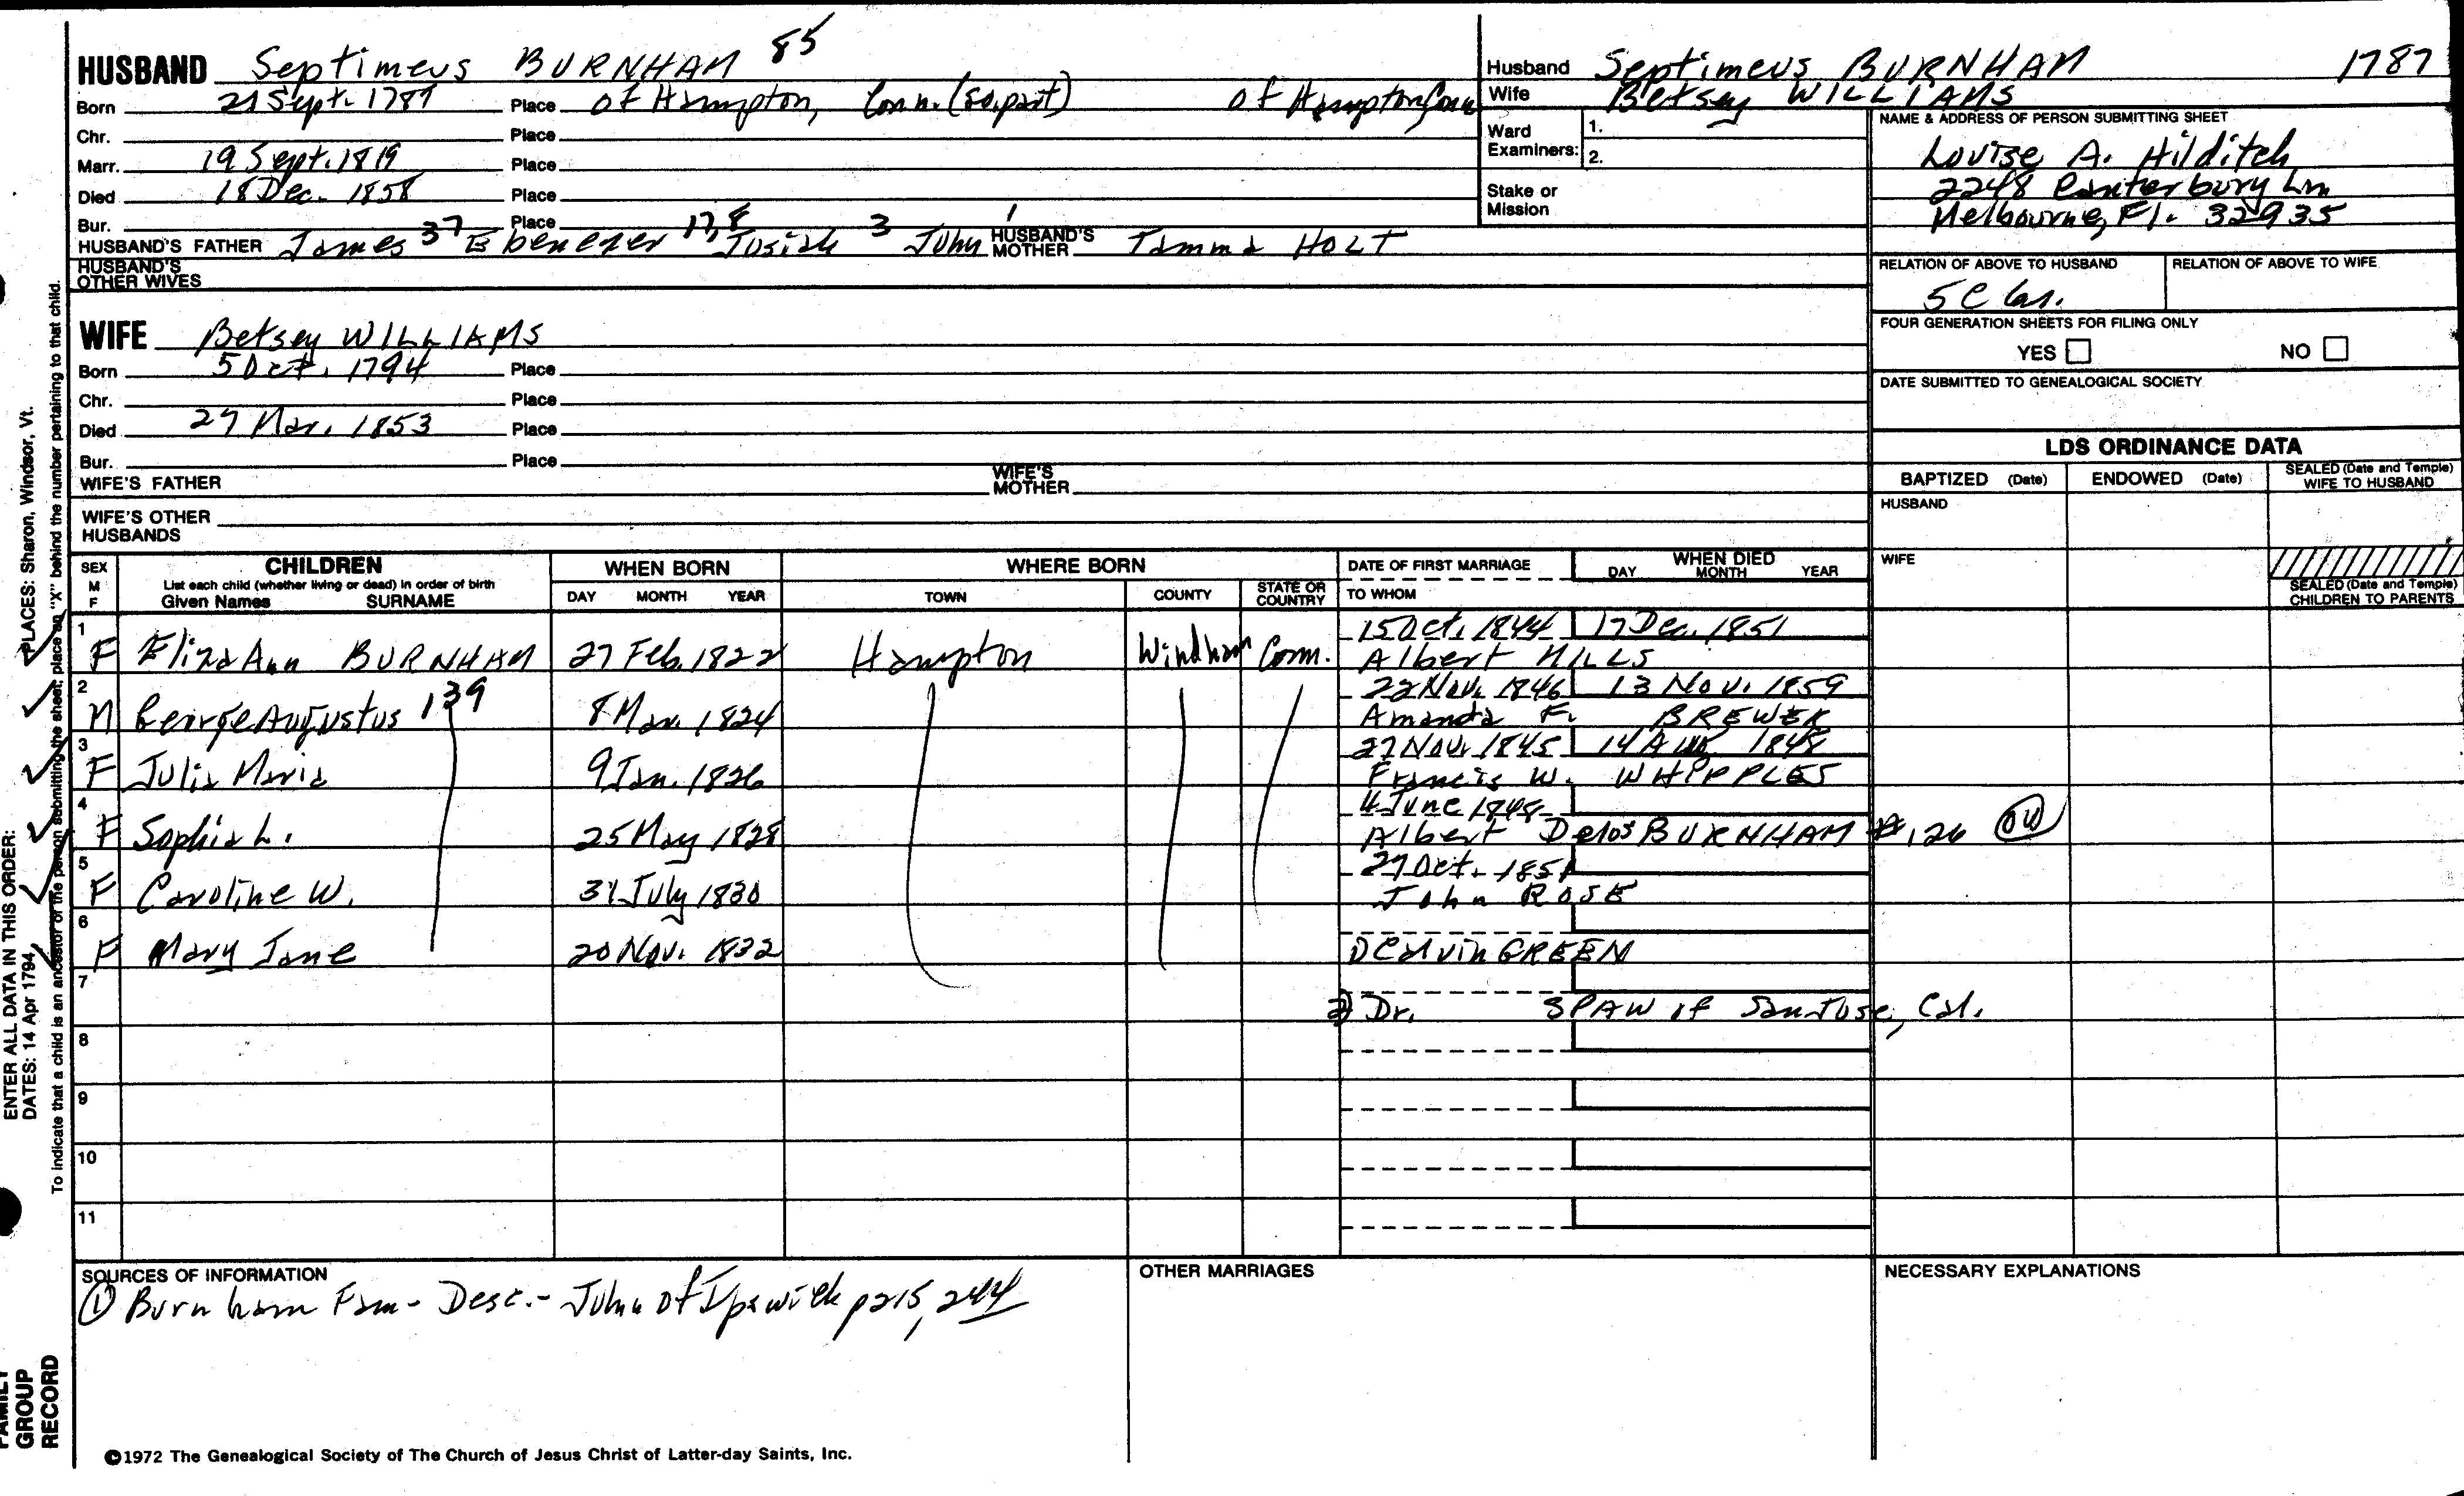 HUSBAND Septimeus BURNHAM 85
Born 21 Sept. 1787 Place of Hampton, Conn. (So. part) of Hampton, Conn
Chr. Place
Marr. 19 Sept. 1819 Place
Died 18 Dec. 1858 Place
Bur. Place
HUSBAND'S FATHER James 37 Ebenezer 17,8 Josiah 3 John 1 HUSBAND'S MOTHER Tamma HOLT
HUSBAND'S OTHER WIVES
WIFE Betsey WILLIAMS
Born 5 Oct. 1794 Place
Chr. Place
Died 27 Mar. 1853 Place
Bur. Place
WIFE'S FATHER WIFE'S MOTHER
WIFE'S OTHER HUSBANDS
Husband Septimeus BURNHAM 1787
Wife Betsey WILLIAMS
Ward Examiners: 1.
2.
Stake or Mission
NAME & ADDRESS OF PERSON SUBMITTING SHEET
Louise A. Hilditch
2248 Canterbury Ln
Melbourne, Fl. 32935
RELATION OF ABOVE TO HUSBAND RELATION OF ABOVE TO WIFE
5C
FOUR GENERATION SHEETS FOR FILING ONLY
YES NO
DATE SUBMITTED TO GENEALOGICAL SOCIETY
LDS ORDINANCE DATA
BAPTIZED (Date) ENDOWED (Date) SEALED (Date and Temple) WIFE TO HUSBAND
HUSBAND
WIFE
SEALED (Date and Temple) CHILDREN TO PARENTS
SEX M F CHILDREN WHEN BORN WHERE BORN DATE OF FIRST MARRIAGE WHEN DIED
List each child (whether living or dead) in order of birth
Given Names SURNAME DAY MONTH YEAR TOWN COUNTY STATE OR COUNTRY TO WHOM DAY MONTH YEAR
1 15 Oct. 1844 17 Dec. 1851
F Eliza Ann BURNHAM 27 Feb. 1822 Hampton Windham Conn. Albert HILLS
2 22 Nov. 1846 13 Nov. 1859
M George Augustus 139 8 Mar. 1824 Amanda F. BREWER
3 27 Nov. 1845 14 Aug 1848
F Julia Maria 9 Jan. 1826 Francis W. WHIPPLES
4 4 June 1848
F Sophia L. 25 May 1828 Albert Delos BURNHAM #126
5 27 Oct. 1851
F Caroline W. 31 July 1830 John ROSE
6
F Mary Jane 20 Nov. 1832 1) Calvin GREEN
7
2) Dr. SPAW of San Jose, Cal.
8
9
10
11
SOURCES OF INFORMATION OTHER MARRIAGES NECESSARY EXPLANATIONS
① Burnham Fam - Desc. - John of Ipswich p 215, 244
©1972 The Genealogical Society of The Church of Jesus Christ of Latter-day Saints, Inc.
ENTER ALL DATA IN THIS ORDER:
DATES: 14 Apr 1794 PLACES: Sharon, Windsor, Vt.
To indicate that a child is an ancestor of the person submitting the sheet, place an "X" behind the number pertaining to that child.
FAMILY
GROUP
RECORD